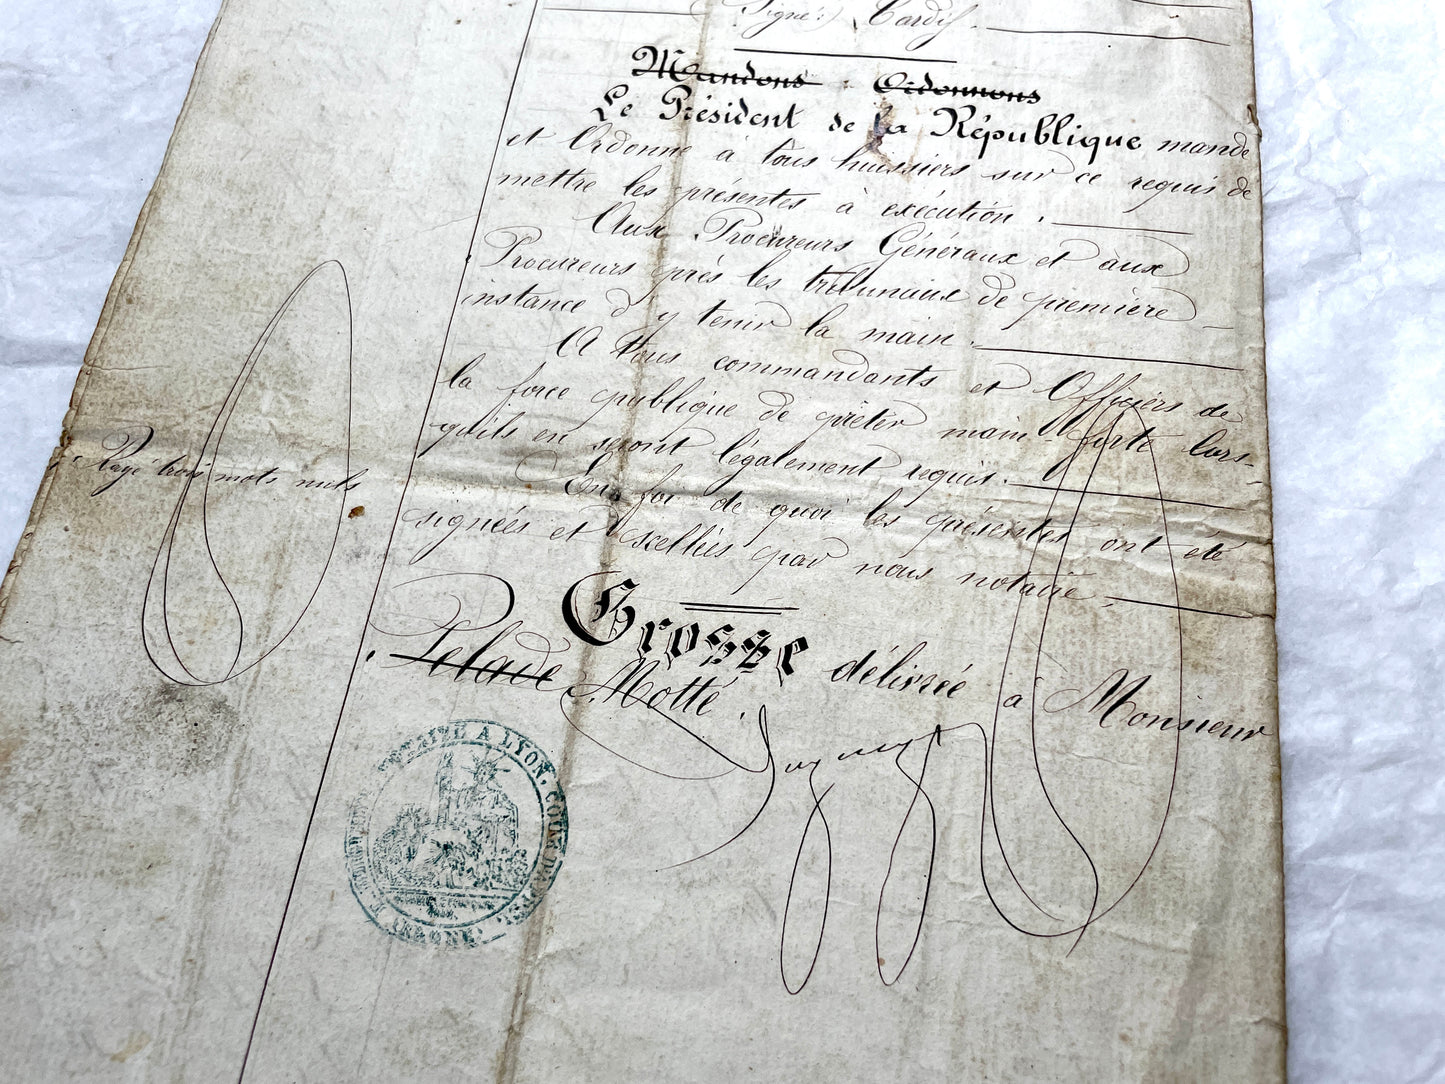 Signé: Cardif.
Mandons Ordonnons
Le Président de la République mande
et Ordonne à tous huissiers sur ce requis de
mettre les présentes à exécution.
Aux Procureurs Généraux et aux
Procureurs près les tribunaux de première
instance d'y tenir la main.
A tous commandants et Officiers de
la force publique de prêter main forte lors-
qu'ils en seront légalement requis.
En foi de quoi les présentes ont été
signées et scellées par nous notaire.
Rayé trois mots nuls
Grosse délivrée à Monsieur
Pelade Motté.
NOTAIRE A LYON, COUR D'APPEL
(RHONE)